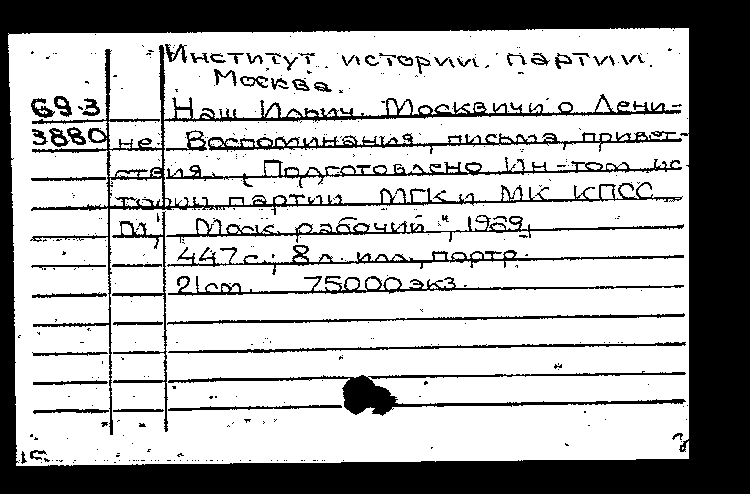 Институт истории партии.
Москва.
69-3 Наш Ильич. Москвичи о Лени-
3880 не. Воспоминания, письма, привет-
ствия. (Подготовлено Ин-том ис-
тории партии МГК и МК КПСС
М., "Моск. рабочий", 1969,
447 с.; 8 л. илл., портр.
21 см. 75000 экз.